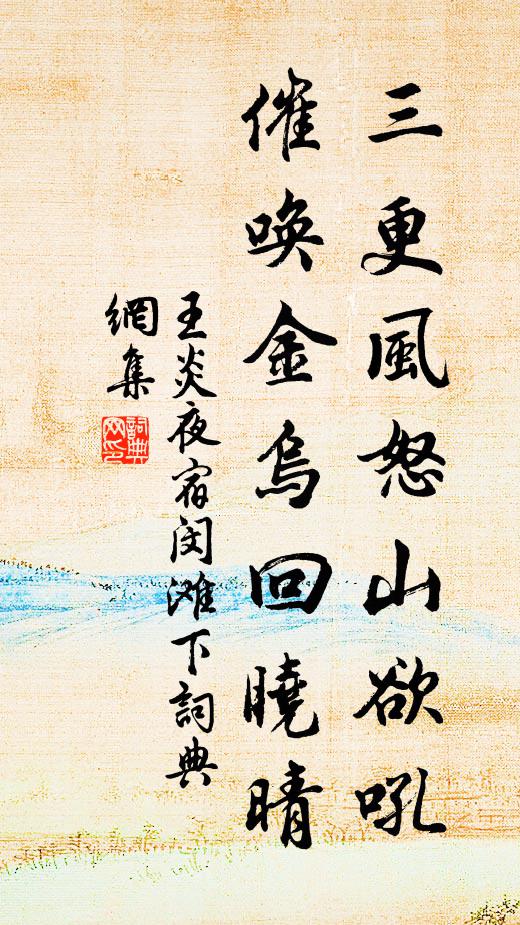 三更風怒山欲吼
催唤金烏回曉晴
王炎夜宿闵滩下詞典
網集
詞典网印